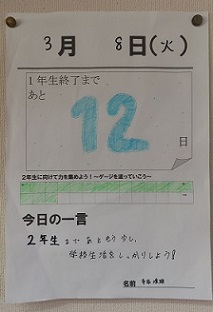 3月 8日(火)
1年生終了まで
あと
12
日
2年生に向けて力を集めよう!~ゲージを塗っていこう~
今日の一言
2年生まであともう少し、
学校生活をしっかりしよう!
名前